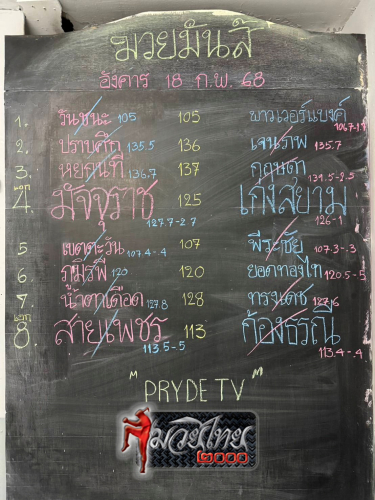 มวยมันส์
อังคาร 18 ก.พ. 68
1. วันชนะ 105 105 พาวเวอร์แบงค์ 106.7-1.7
2. ปราบศึก 135.5 136 เจนภพ 135.7
3. หยกนที 136.7 137 กฤษดา 131.5-2.5
เอก
4. มัจจุราช 127.7-2.7 125 เก่งสยาม 126-1
5. เขตตะวัน 107.4-.4 107 พีระชัย 107.3-.3
6. ภูมิรพี 120 120 ยอดทองไท 120.5-.5
7. น้ำตาเดือด 127.8 128 ทรงเดช 127.6
เอก
8. สายเพชร 113.5-5 113 ก้องธรณี 113.4-.4
" PRYDE TV "
มวยไทย
๒๐๐๐